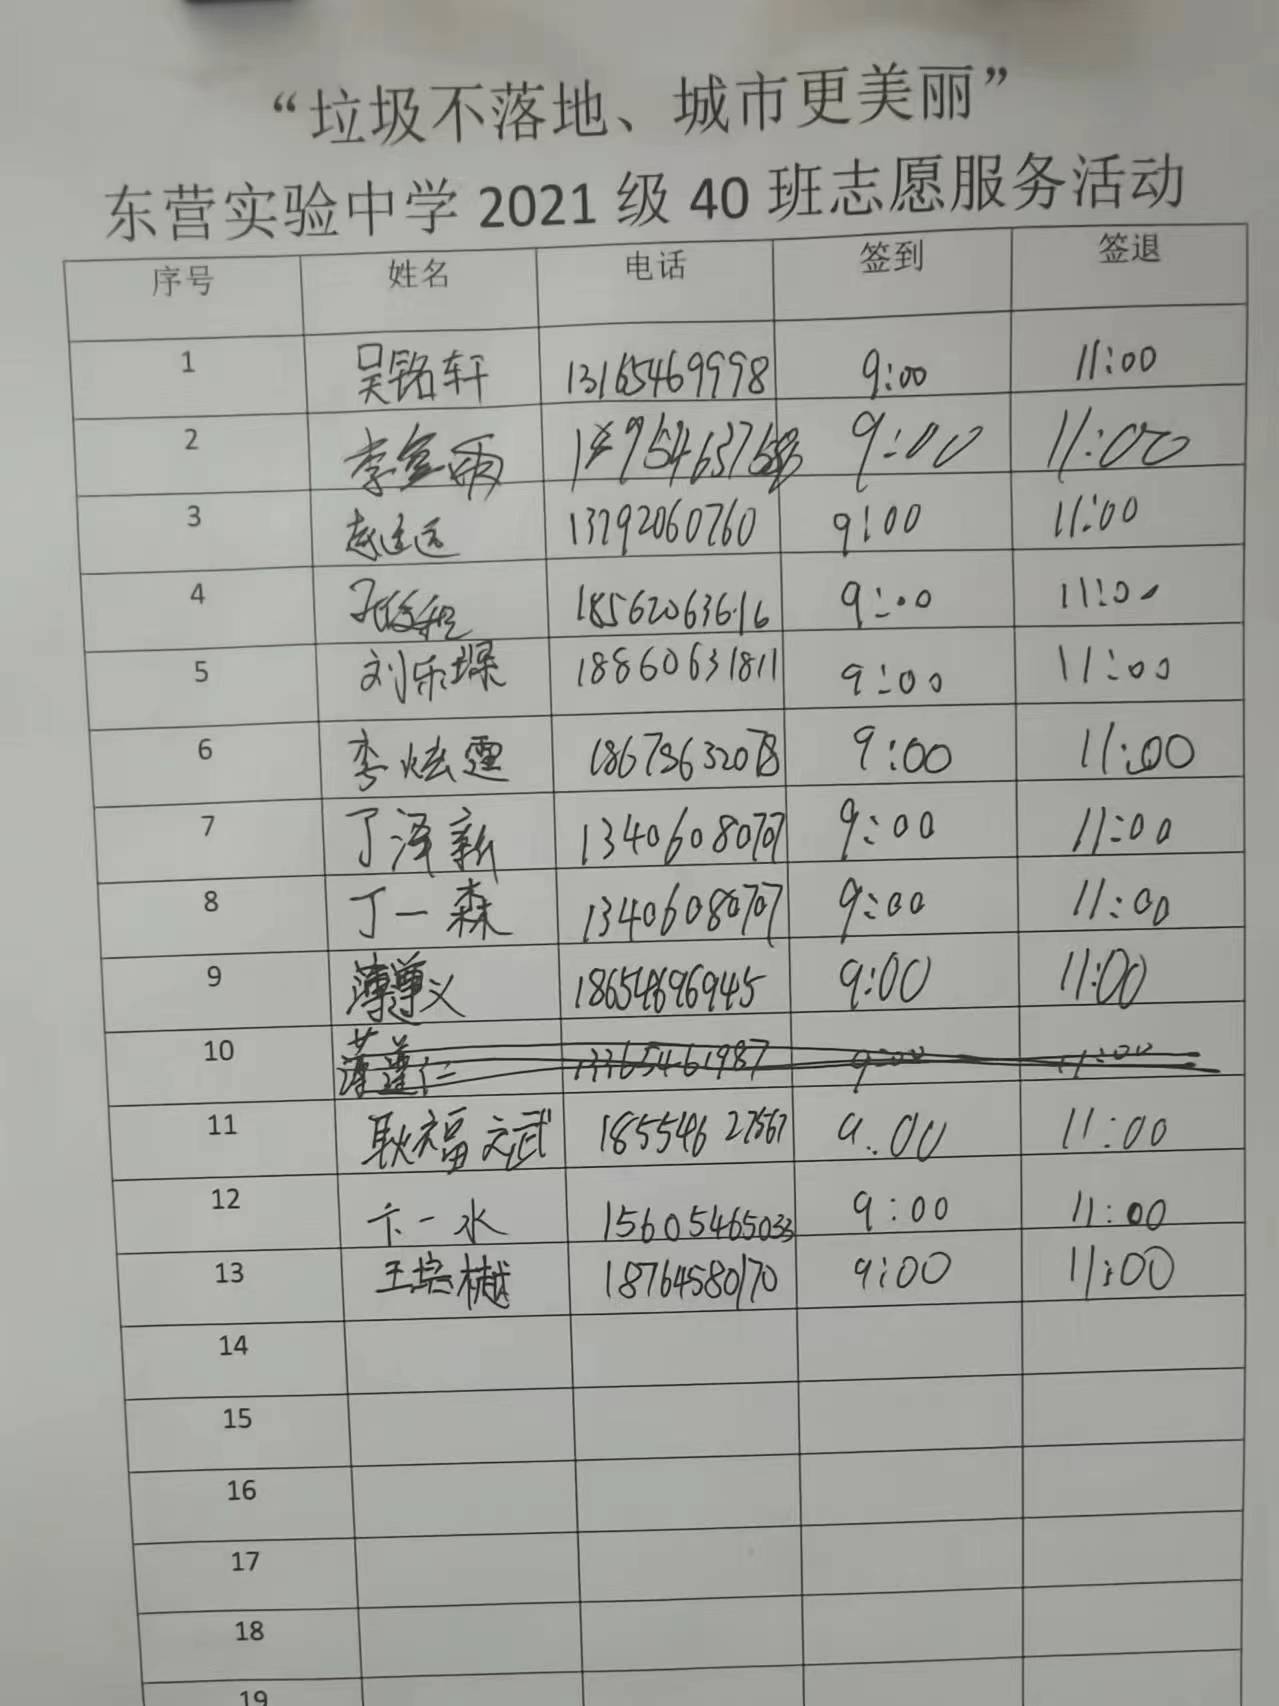 “垃圾不落地、城市更美丽”
东营实验中学 2021 级 40 班志愿服务活动
序号 姓名 电话 签到 签退
1 吴铭轩 13165469998 9:00 11:00
2 李 9:00 11:00
3 赵 13792060760 9:00 11:00
4 孔 18562063616 9:00 11:00
5 刘乐堔 18860631811 9:00 11:00
6 李炫霆 9:00 11:00
7 丁泽新 13406080707 9:00 11:00
8 丁一森 13406080707 9:00 11:00
9 薄尊义 18654696945 9:00 11:00
10 薄遵仁 13365461987 9:00 11:00
11 耿福文武 18554627567 9:00 11:00
12 卞一水 15605465033 9:00 11:00
13 王培樾 18764580170 9:00 11:00
14
15
16
17
18
19